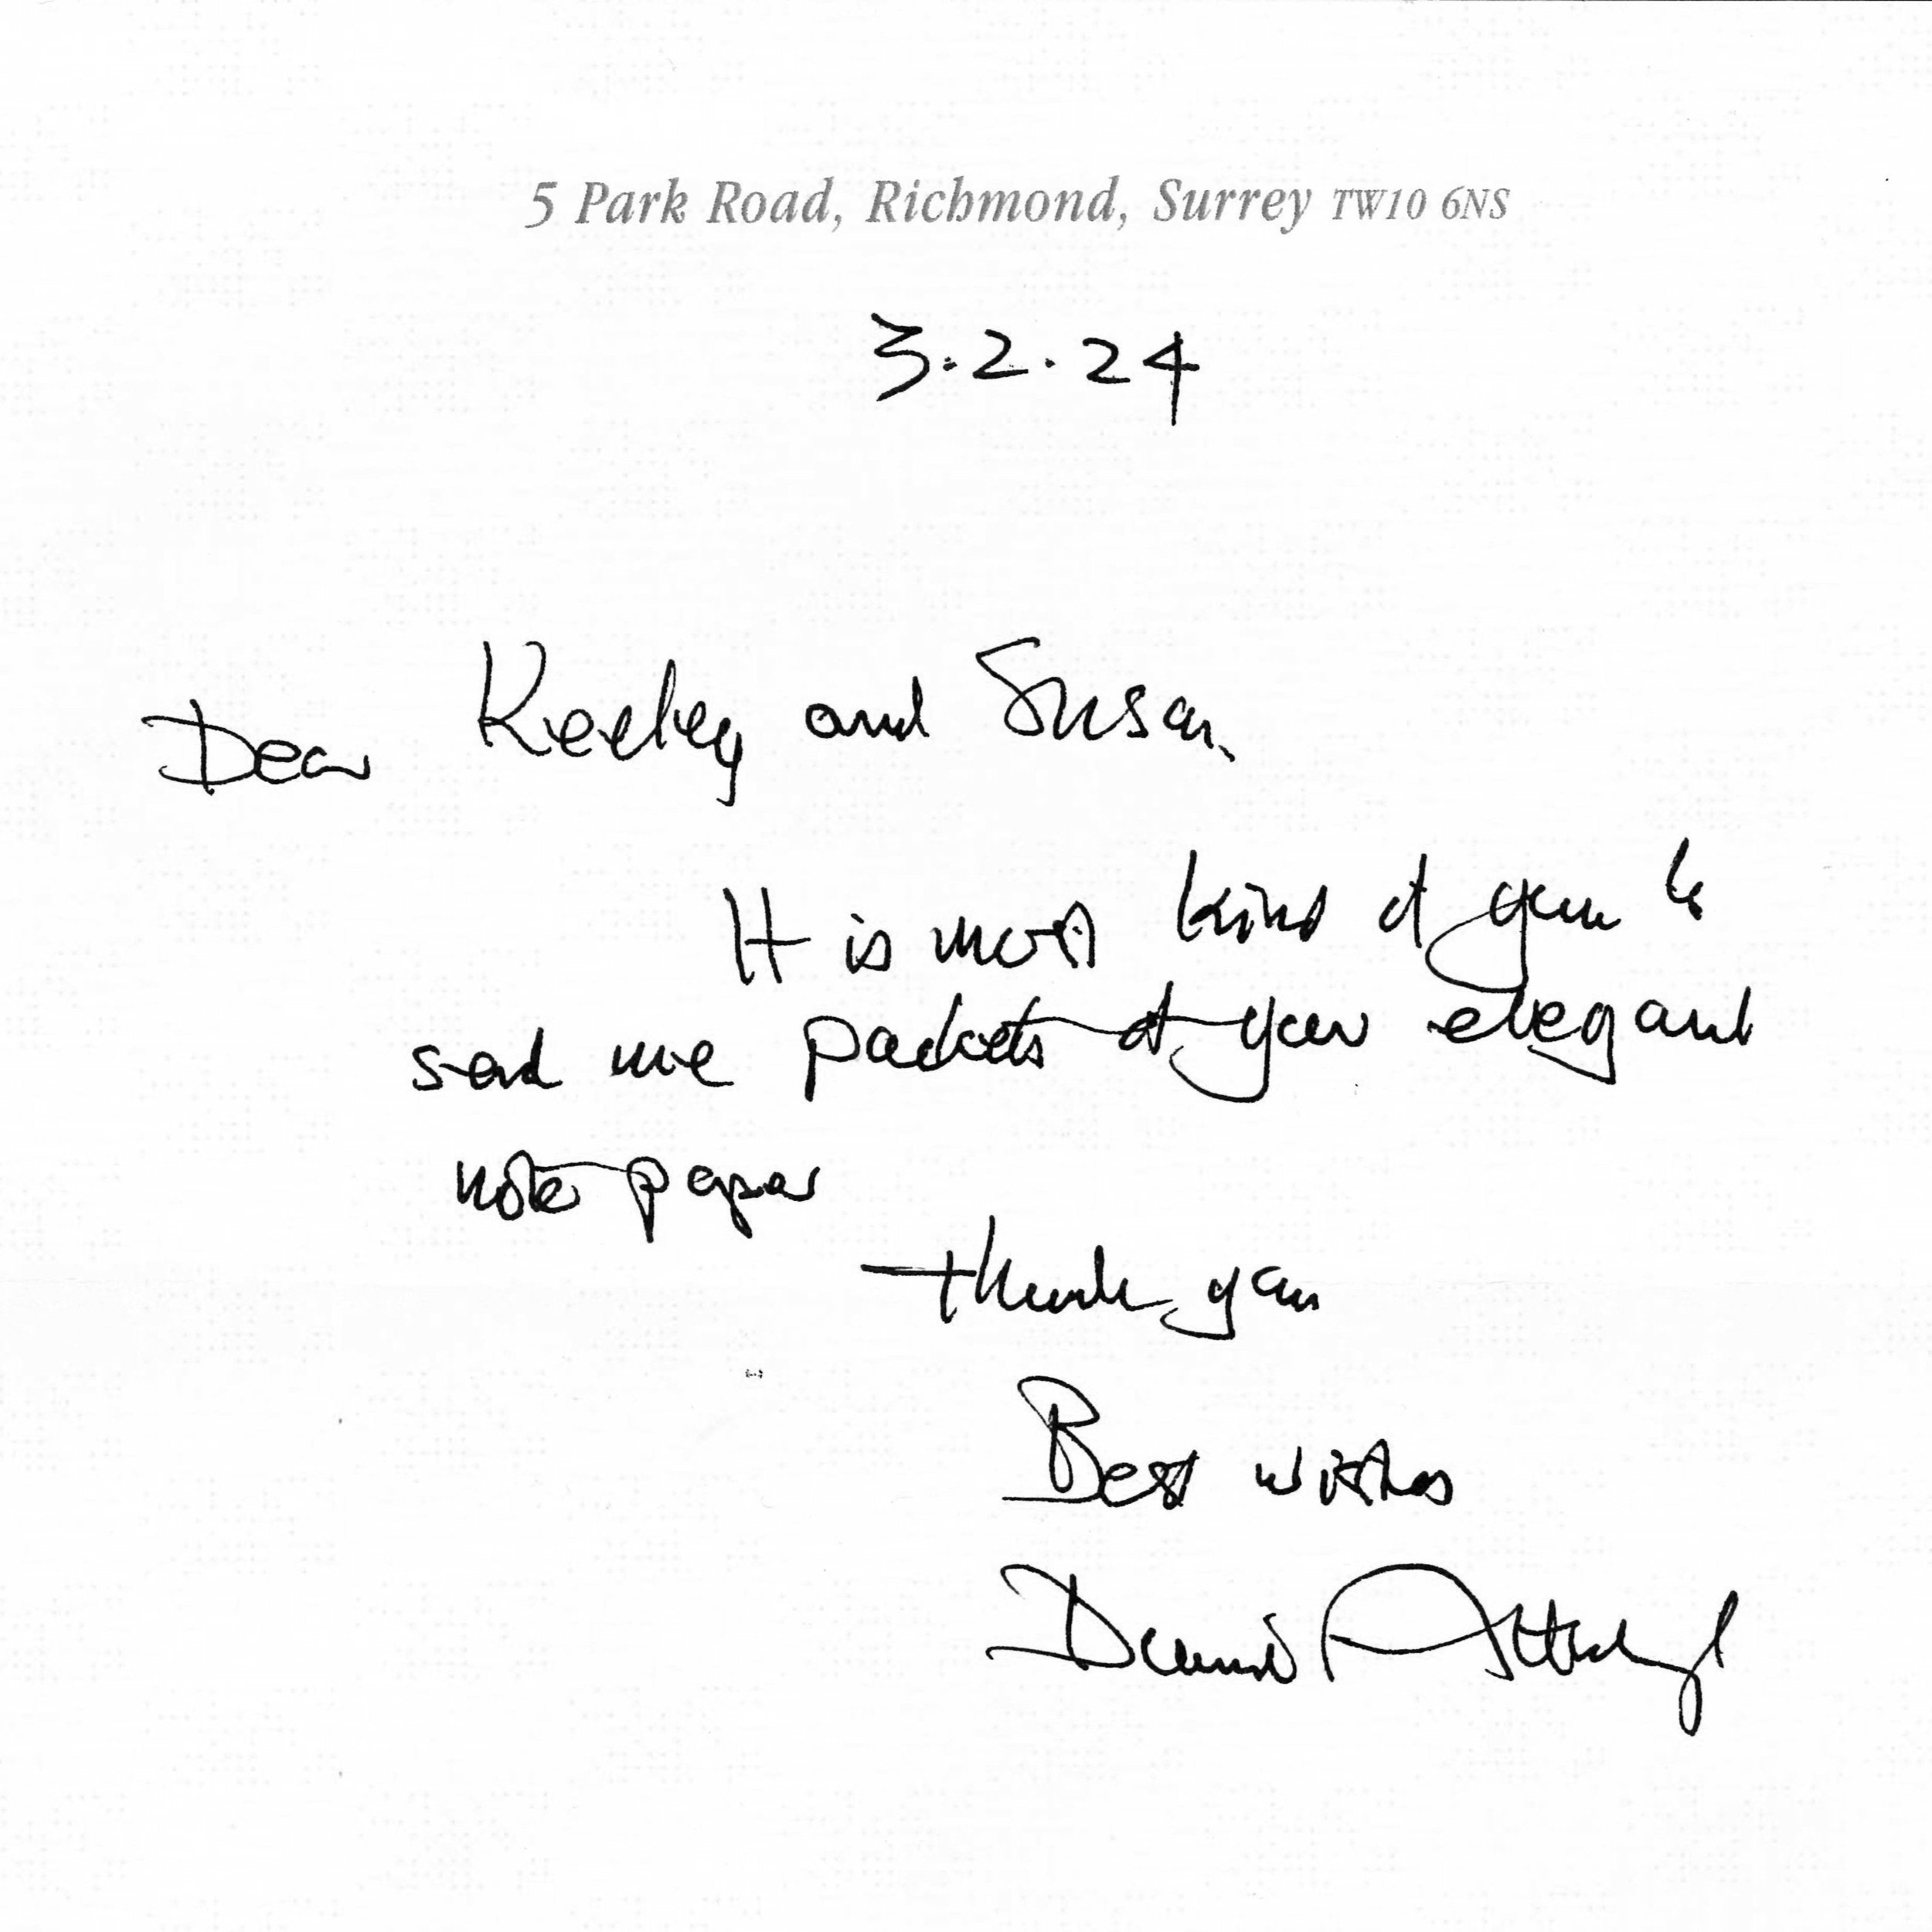 5 Park Road, Richmond, Surrey TW10 6NS
3.2.24
Dear Keeley and Susan
It is most kind of you to
send me packets of your elegant
note paper
thank you
Best wishes
David Attenborough